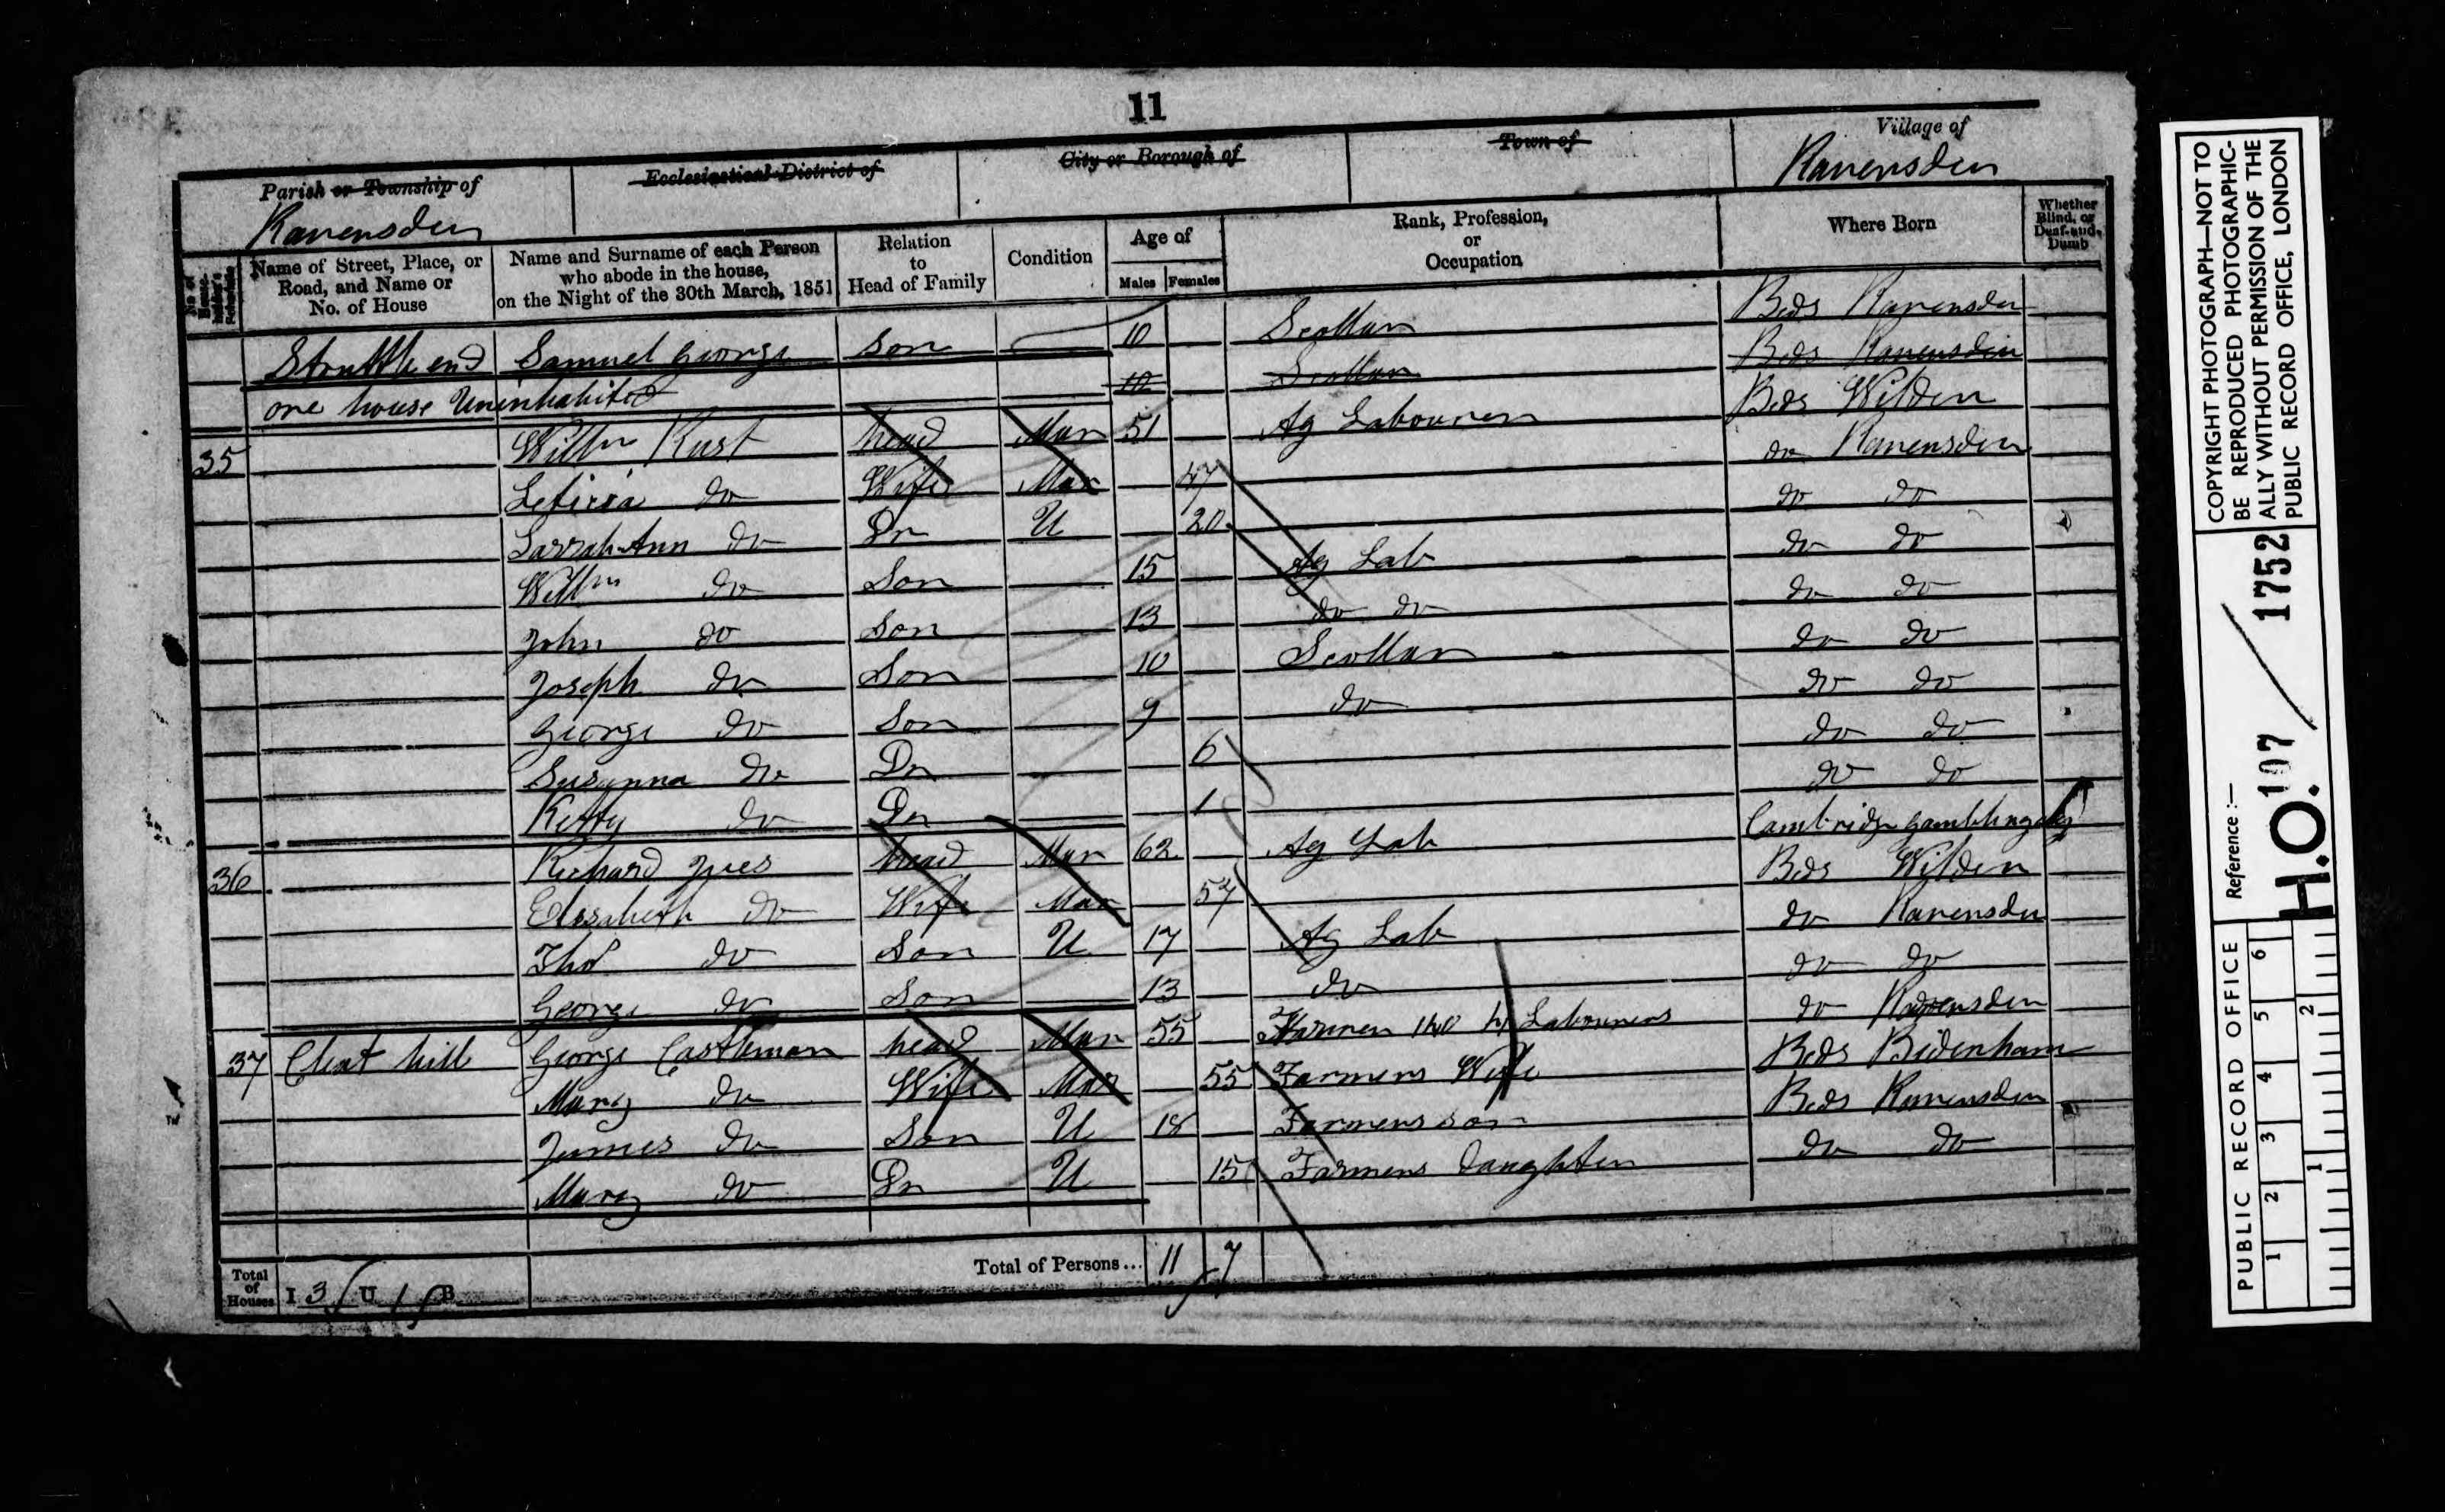 11
Parish or Township of
Ravensden
Ecclesiastical District of
City or Borough of
Town of
Village of
Ravensden
No. of House-holder's Schedule
Name of Street, Place, or Road, and Name or No. of House
Name and Surname of each Person who abode in the house, on the Night of the 30th March, 1851
Relation to Head of Family
Condition
Age of
Males Females
Rank, Profession, or Occupation
Where Born
Whether Blind, or Deaf-and-Dumb
end Samuel George Son 10 Scollar Beds Ravensden
one house Uninhabited 10 Scollar Beds Ravensden
35 Willm Rust head Mar 51 Ag Labourer Beds Wilden
Leticia do Wife Mar 47 do Ravensden
Sarrah Ann do Dr U 20 do do
Willm do Son 15 Ag Lab do do
John do Son 13 do do do do
Joseph do Son 10 Scollar do do
George do Son 9 do do do
Susanna do Dr 6 do do
Kitty do Dr 1 do do
36 Richard head Mar 62 Ag Lab Cambridge
Elizabeth do Wife Mar 57 Beds Wilden
Thos do Son U 17 Ag Lab do Ravensden
George do Son 13 do do do
37 hill George Castleman head Mar 55 Farmer 140 4 Labourers do Ravensden
Mary do Wife Mar 55 Farmers Wife Beds Bidenham
James do Son U 18 Farmers son Beds Ravensden
Mary do Dr U 15 Farmers daughter do do
Total of Houses I 3 U 1 B
Total of Persons... 11 7
COPYRIGHT PHOTOGRAPH—NOT TO
BE REPRODUCED PHOTOGRAPHIC-
ALLY WITHOUT PERMISSION OF THE
PUBLIC RECORD OFFICE, LONDON
Reference :—
H.O. 107 / 1752
PUBLIC RECORD OFFICE
1 2 3 4 5 6
1 2